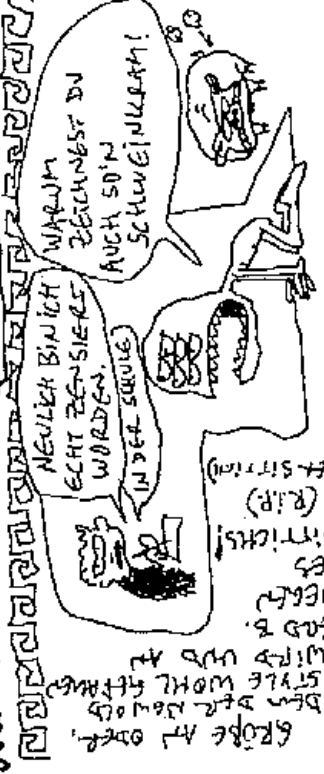 NEULICH BIN ICH
ECHT ZENSIERT
WORDEN.
(IN DER SCHULE)
WARUM
ZEICHNEST DU
AUCH SO'N
SCHWEINKRAM!
GRÜßE AN ODER,
DEM DER NEWOLD
STYLE WOHL GEFALLEN
WIRD UND AN
B.
(R.I.P.)